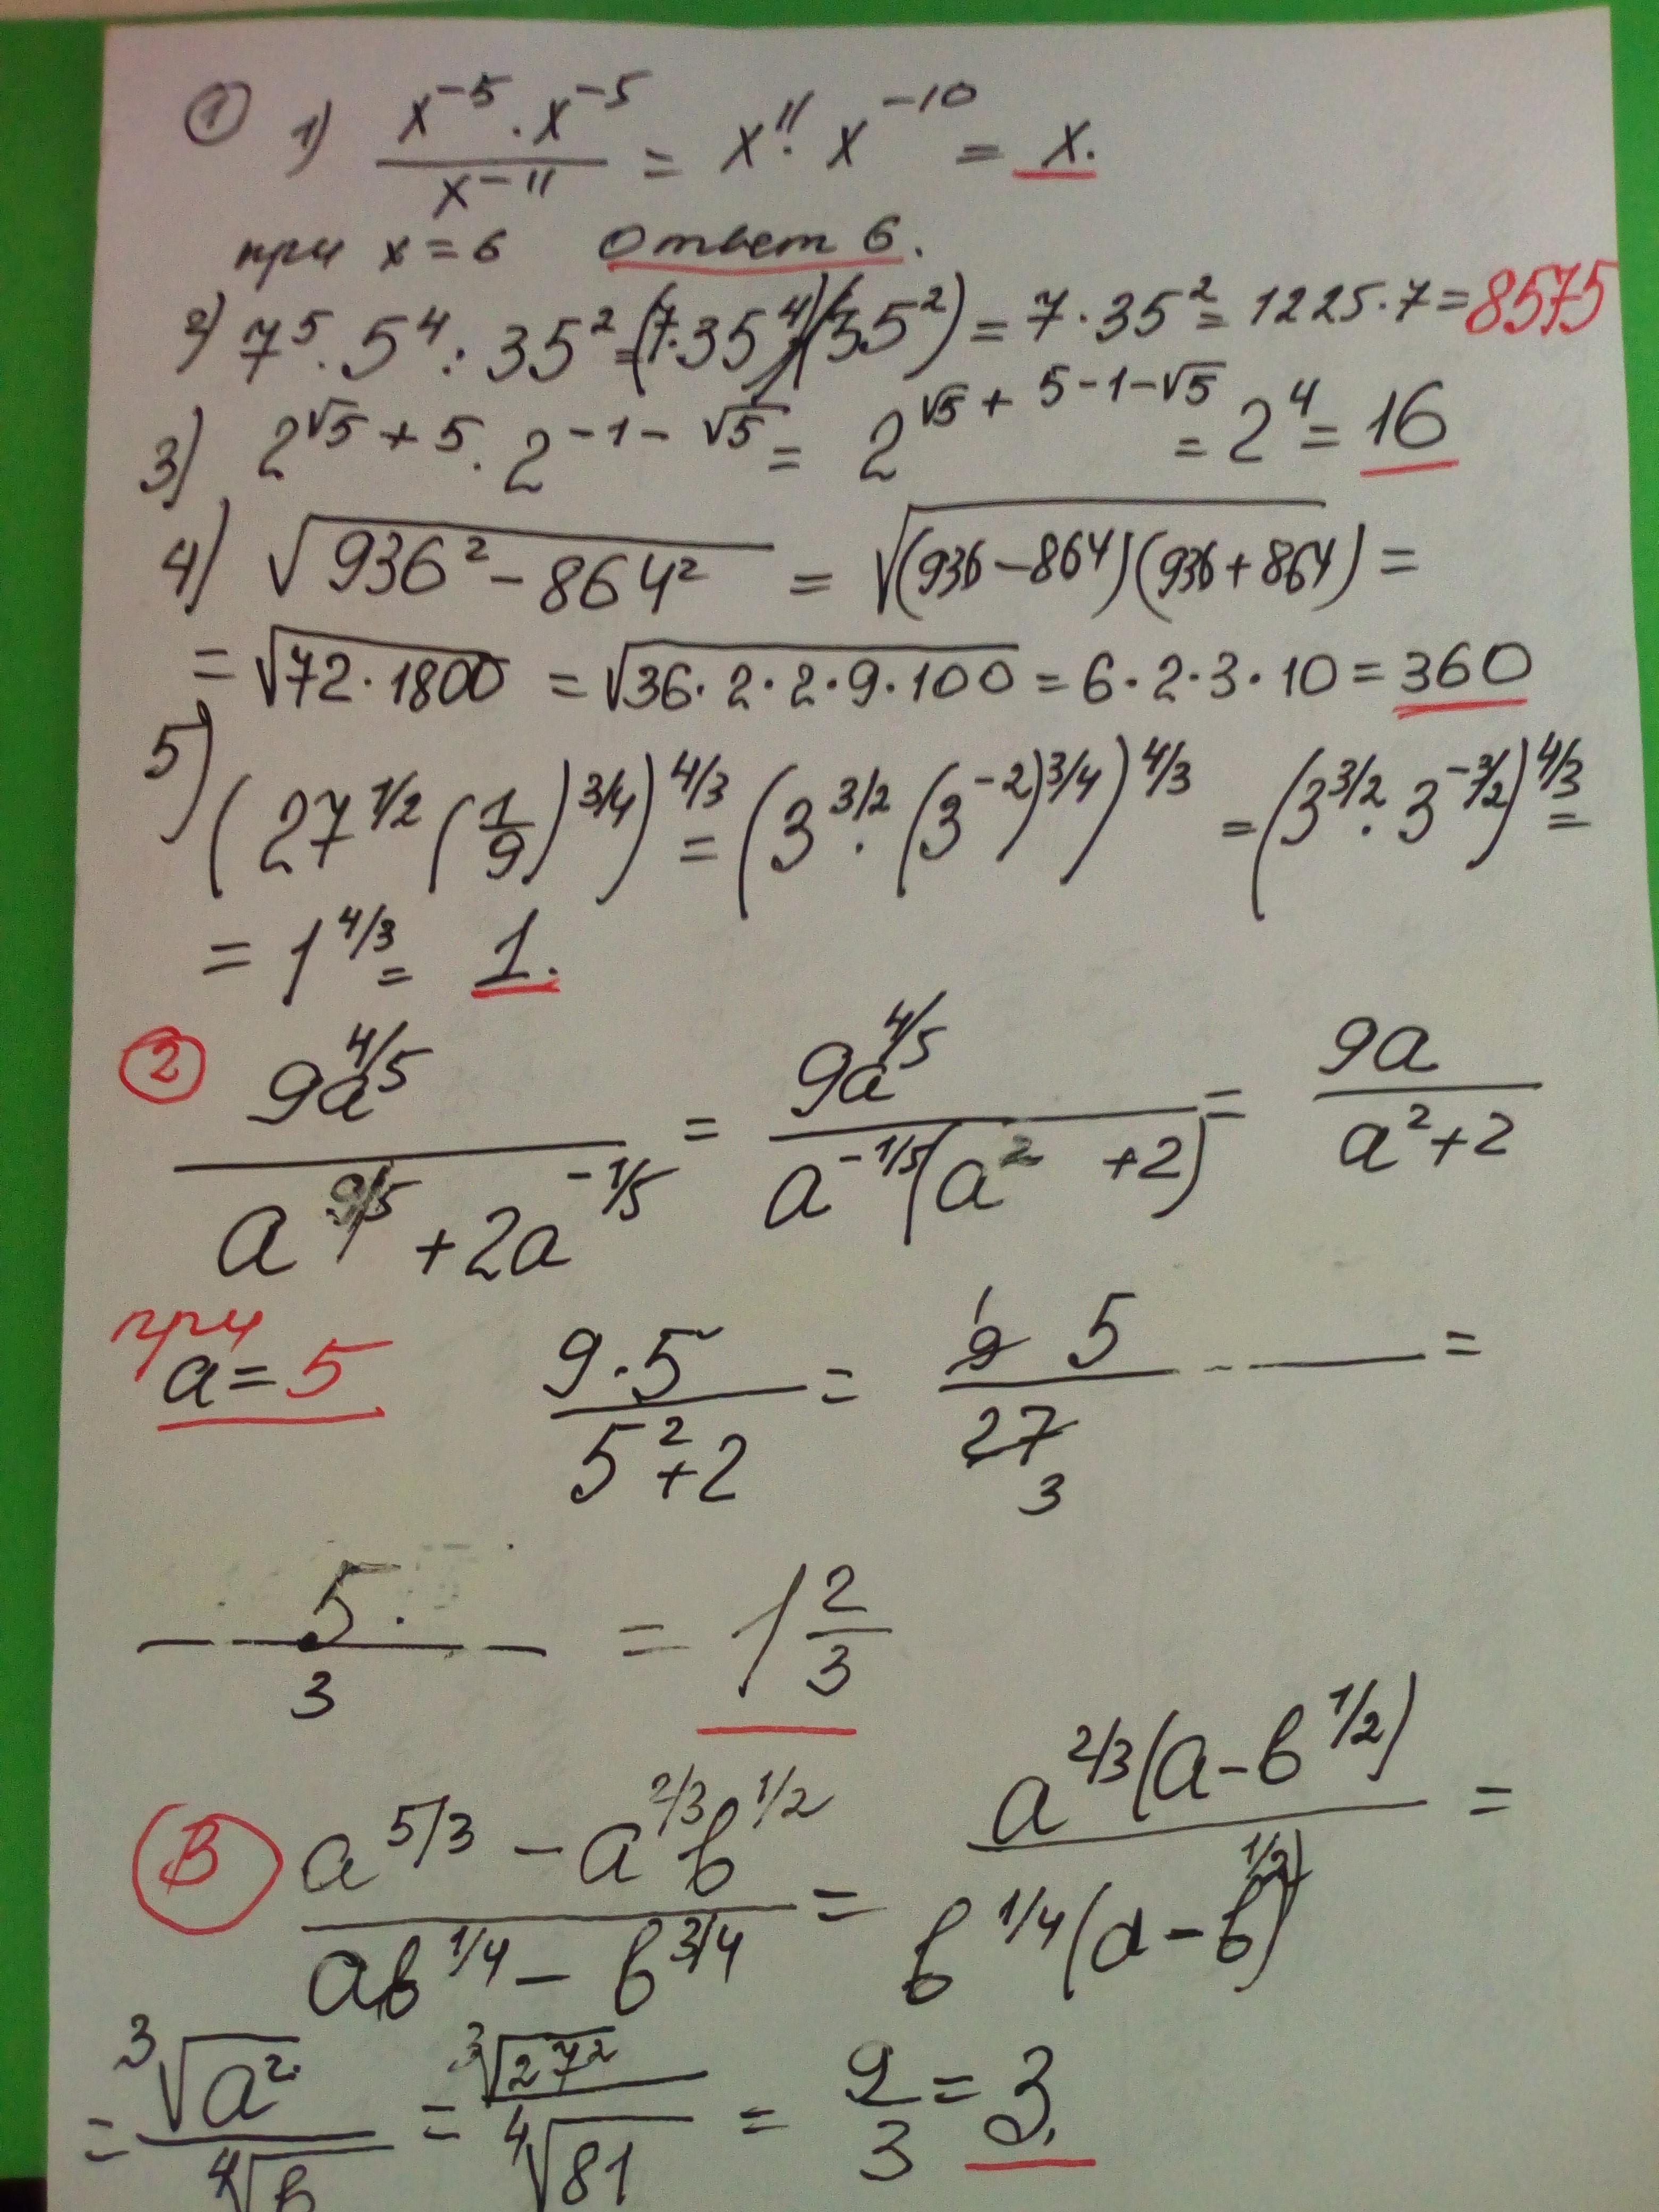 ① 1) x⁻⁵ · x⁻⁵ / x⁻¹¹ = x¹¹ · x⁻¹⁰ = x.
при x = 6 Ответ 6.
2) 7⁵ · 5⁴ : 35² = (7·35⁴):(35²) = 7 · 35² = 1225 · 7 = 8575
3) 2^(√5 + 5) · 2^(-1 - √5) = 2^(√5 + 5 - 1 - √5) = 2⁴ = 16
4) √(936² - 864²) = √((936 - 864)(936 + 864)) =
= √(72 · 1800) = √(36 · 2 · 2 · 9 · 100) = 6 · 2 · 3 · 10 = 360
5) (27^(1/2) (1/9)^(3/4))^(4/3) = (3^(3/2) · (3⁻²)^(3/4))^(4/3) = (3^(3/2) · 3^(-3/2))^(4/3) =
= 1^(4/3) = 1.
② 9a^(4/5) / (a^(9/5) + 2a^(-1/5)) = 9a^(4/5) / (a^(-1/5)(a² + 2)) = 9a / (a² + 2)
при a = 5 9·5 / (5² + 2) = 9 5 / 27 =
1 3
5 / 3 = 1 2/3
В (a^(5/3) - a^(2/3) b^(1/2)) / (ab^(1/4) - b^(3/4)) = a^(2/3)(a - b^(1/2)) / (b^(1/4)(a - b^(1/2))) =
= ³√a² / ⁴√b = ³√27² / ⁴√81 = 9/3 = 3.